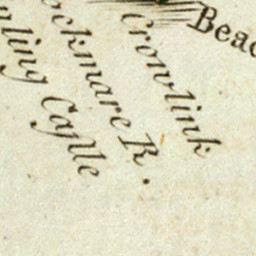 Beac
Crowlink
ockmare R.
ling Caſtle